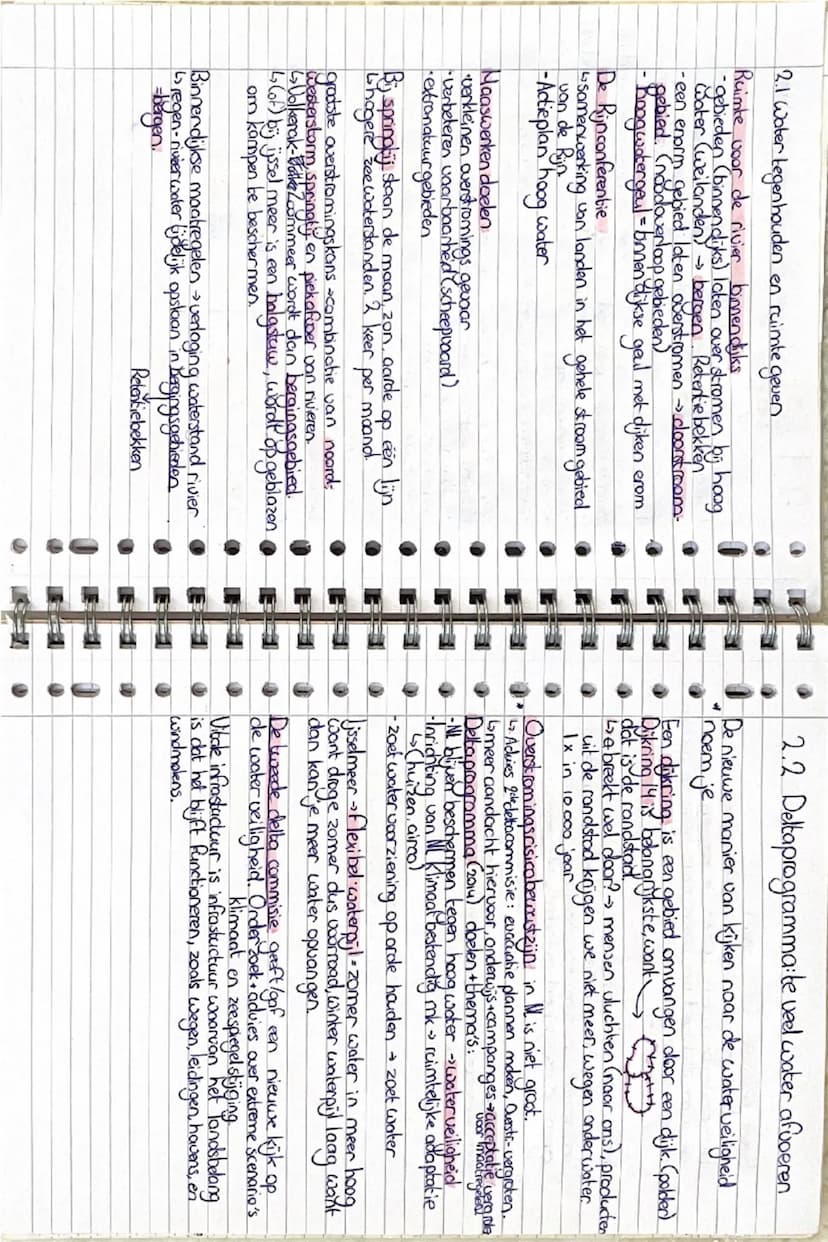 2.1 Water tegenhouden en ruimte geven
Ruimte voor de rivier binnendijks
- gebieden (binnendijks) laten overstromen bij hoog
water (weilanden) → bergen Retentiebekken
- een enorm gebied laten overstromen → doorstroom-
gebied. (noodoverloopgebieden)
- hoogwatergeul = binnendijkse geul met dijken erom
De Rijnconferentie
↳ samenwerking van landen in het gehele stroomgebied
van de Rijn
- Actieplan hoog water
Maaswerken doelen
- verkleinen overstromings gevaar
- verbeteren vaarbaarheid (scheepvaart)
- extra natuurgebieden
Bij springtij staan de maan, zon, aarde op één lijn
↳ hogere zeewaterstanden 2 keer per maand.
grootste overstromingskans → combinatie van noord-
westerstorm, springtij en piekafvoer van rivieren.
↳ Volkerak- Zoommeer wordt dan bergingsgebied.
↳ (of) bij ijsselmeer is een balgstuw, wordt opgeblazen
om kampen te beschermen.
Binnendijkse maatregelen → verlaging waterstand rivier
↳ regen-rivierwater tijdelijk opslaan in bergingsgebieden
= bergen.
Retentiebekken
2.2 Deltaprogramma: te veel water afvoeren
De nieuwe manier van kijken naar de waterveiligheid
noem je *
Een dijkring is een gebied omvangen door een dijk. (polder)
Dijkring 14 is belangrijkste, want
dat is de randstad
↳ breekt wel door? → mensen vluchten (naar ons), producten
uit de randstad krijgen we niet meer, wegen onder water.
1x in 10 000 jaar
* Overstromingsrisicobewustzijn in NL is niet groot.
↳ Advies 2de deltacommissie: evacuatie plannen maken,
↳ meer aandacht hiervoor, onderwijs + campanges → acceptatie
voor maatregelen
Deltaprogramma doelen + thema's:
- NL blijven beschermen tegen hoog water → waterveiligheid
- Inrichting van NL klimaat bestendig mk → ruimtelijke adaptatie
↳ (huizen, airco)
- zoet water voorziening op orde houden → zoet water
Ijsselmeer → flexibel waterpijl = zomer water in meer hoog
want droge zomer dus voorraad, winter waterpijl laag want
dan kan je meer water opvangen.
De tweede delta commisie geeft/gaf een nieuwe kijk op
de water veiligheid. Onderzoek + advies over extreme scenario's
klimaat en zeespiegelstijging
Vitale infrastructuur is infrastuctuur waarvan het landsbelang
is dat het blijft functioneren, zoals wegen, leidingen, havens, en
windmolens.